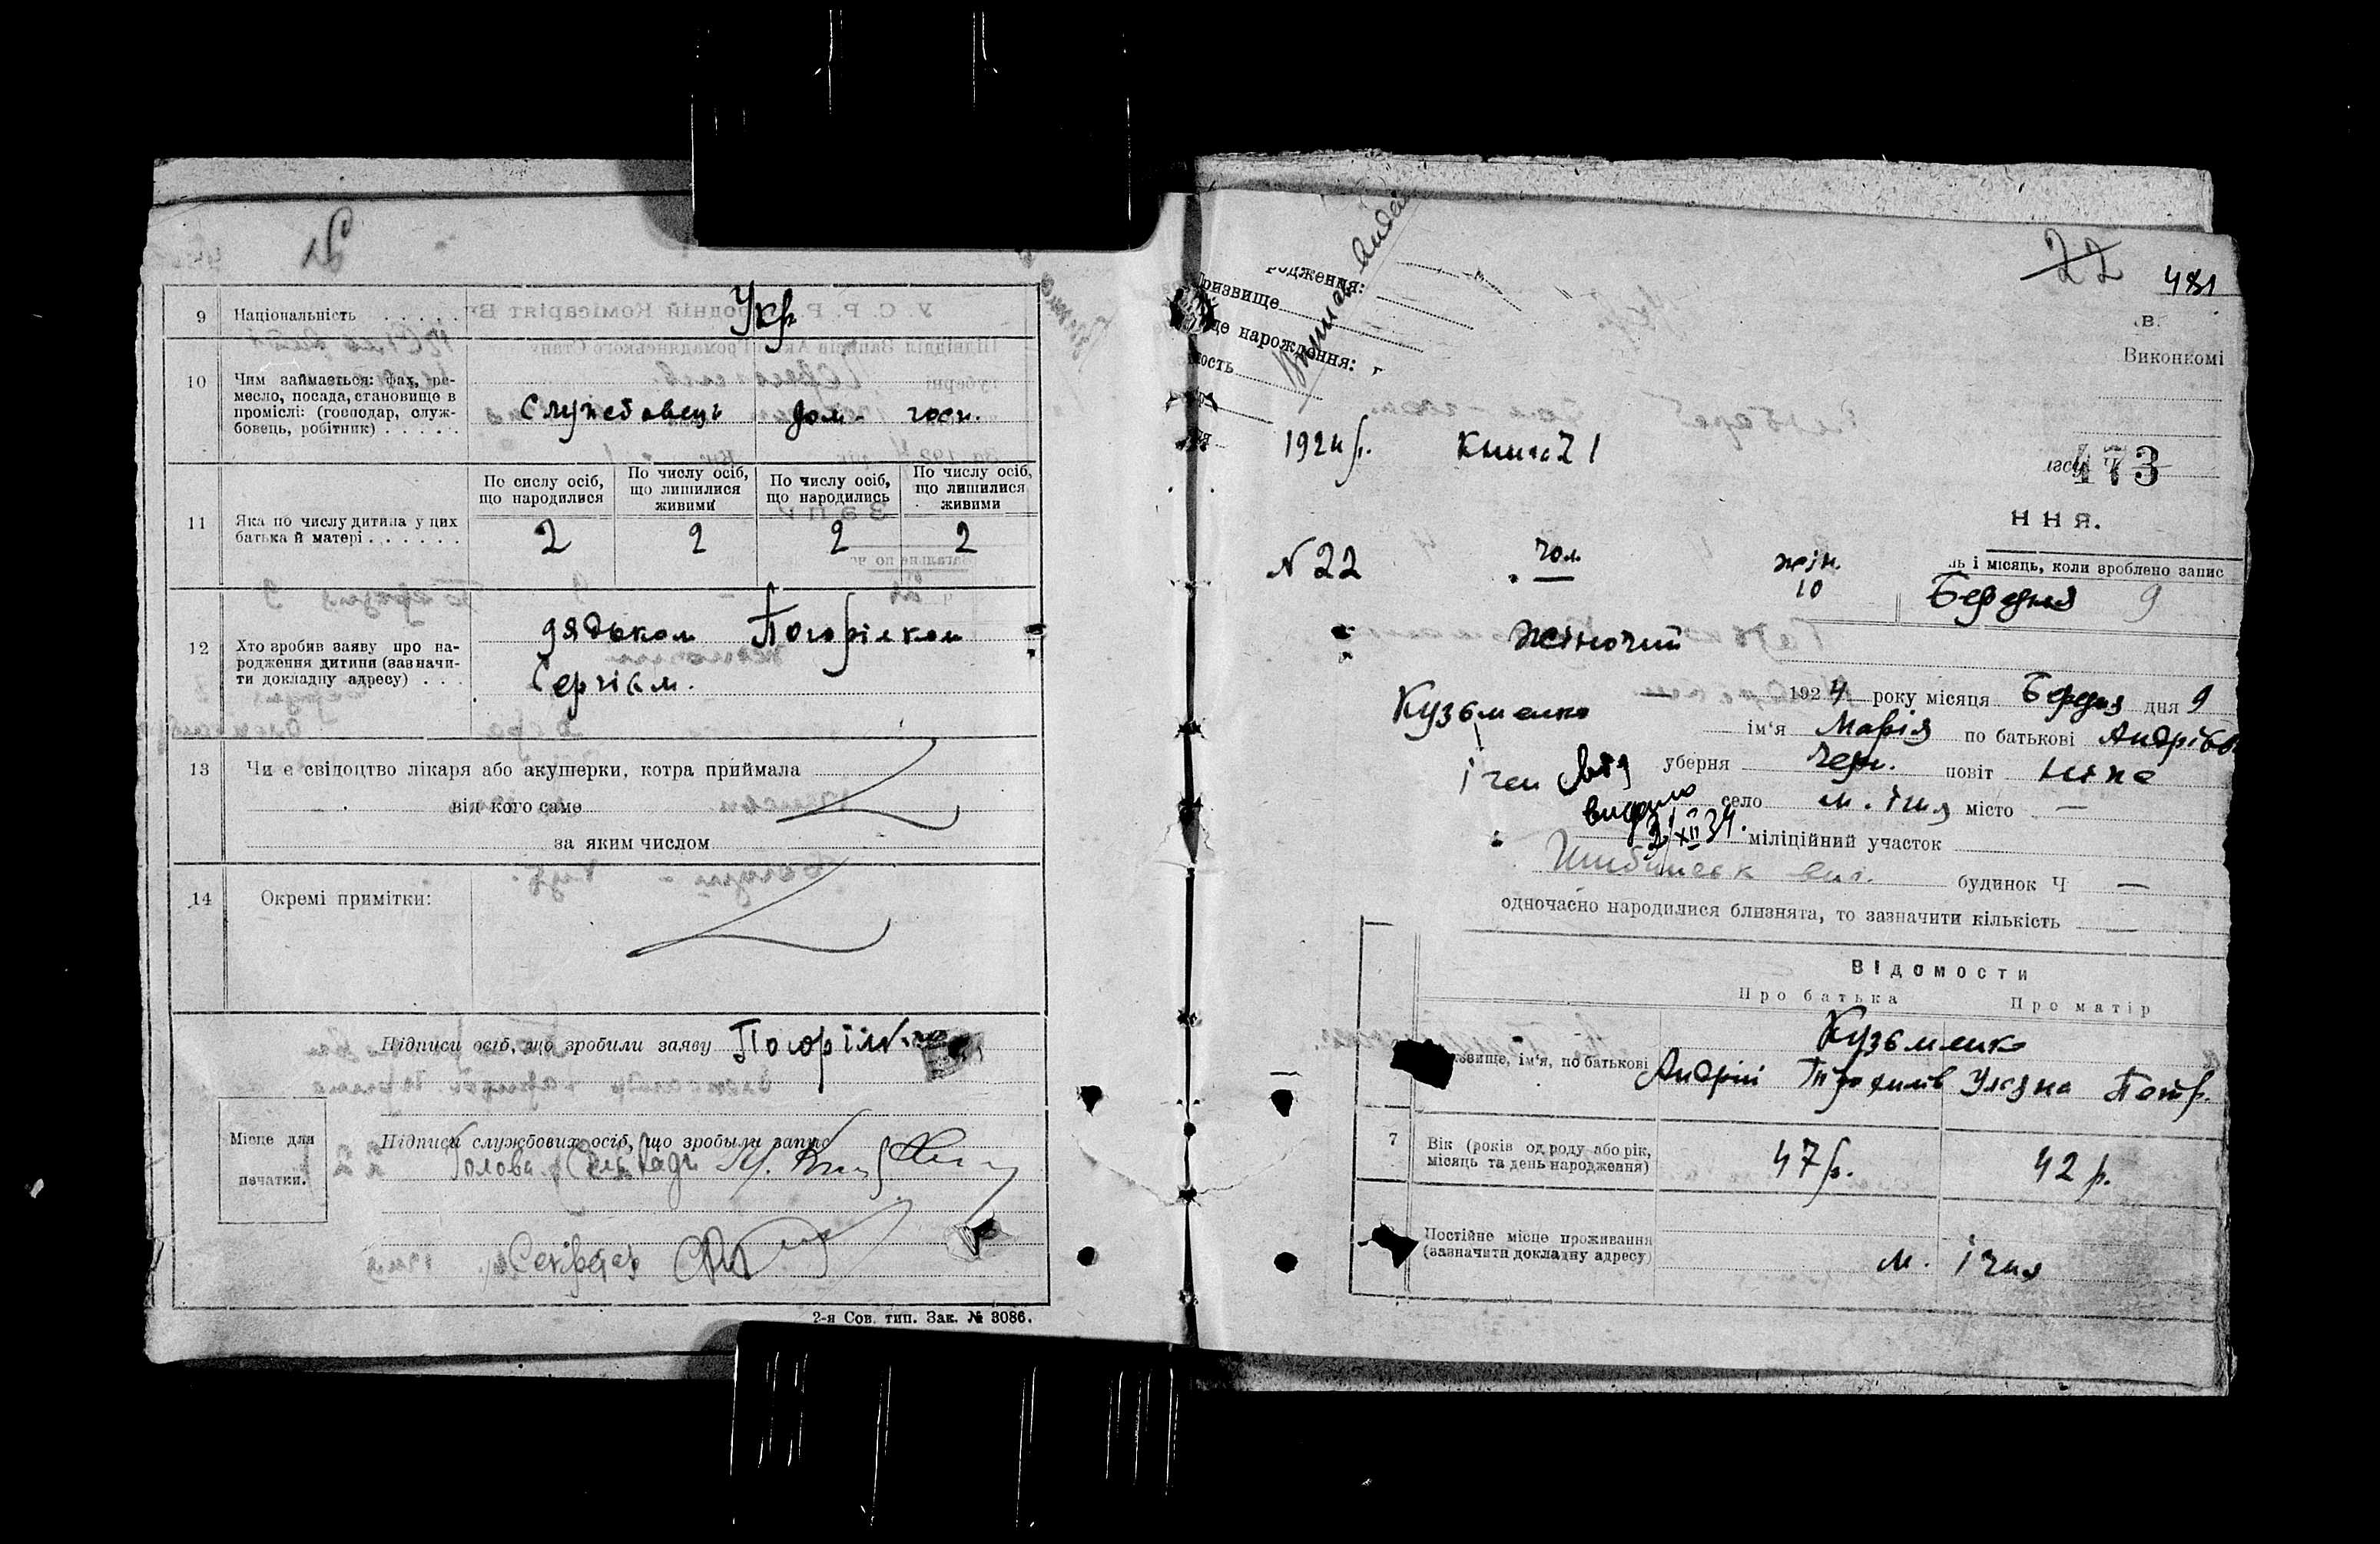 9 Національність . . . . . Укр.
10 Чим займається: фах, ре-
месло, посада, становище в
проміслі: (господар, служ-
бовець, робітник) . . . . .
Службовець дом- госп.
По сислу осіб, що народилися
По числу осіб, що лишилися живими
По числу осіб, що народились
По числу осіб, що лишилися живими
11 Яка по числу дитина у цих
батька й матері . . . . . .
2 2 2 2
12 Хто зробив заяву про на-
родження дитини (зазначи-
ти докладну адресу) . . .
дядьком Погорілком
Сергієм.
13 Чи є свідоцтво лікаря або акушерки, котра приймала
від кого саме
за яким числом
14 Окремі примітки:
Підписи осіб, що зробили заяву Погорілко
Місце для
печатки.
Підписи службових осіб, що зробили запис
Голова
Секретар
2-я Сов. тип. Зак. № 3086.
родження:
ризвище
де народження: г
ность
22
481
.в.
Виконкомі
1924 р. Книга 1
473
ння.
N 22 чол. жін.
10
ь і місяць, коли зроблено запис
Березня 9
жіночий
1924 року місяця Березня дня 9
Кузьменко ім'я Марія по батькові Андрієв
уберня Черн. повіт Ніже
видано село м. Ічня місто —
21/XII 34. міліційний участок
будинок Ч —
одночасно народилися близнята, то зазначити кількість
Відомости
Про батька Про матір
Кузьменко
звище, ім'я, по батькові Андрій Трохимів Уляна Петр.
7 Вік (років од роду або рік,
місяць та день народження)
47 р. 42 р.
Постійне місце проживання
(зазначити докладну адресу)
м. Ічня